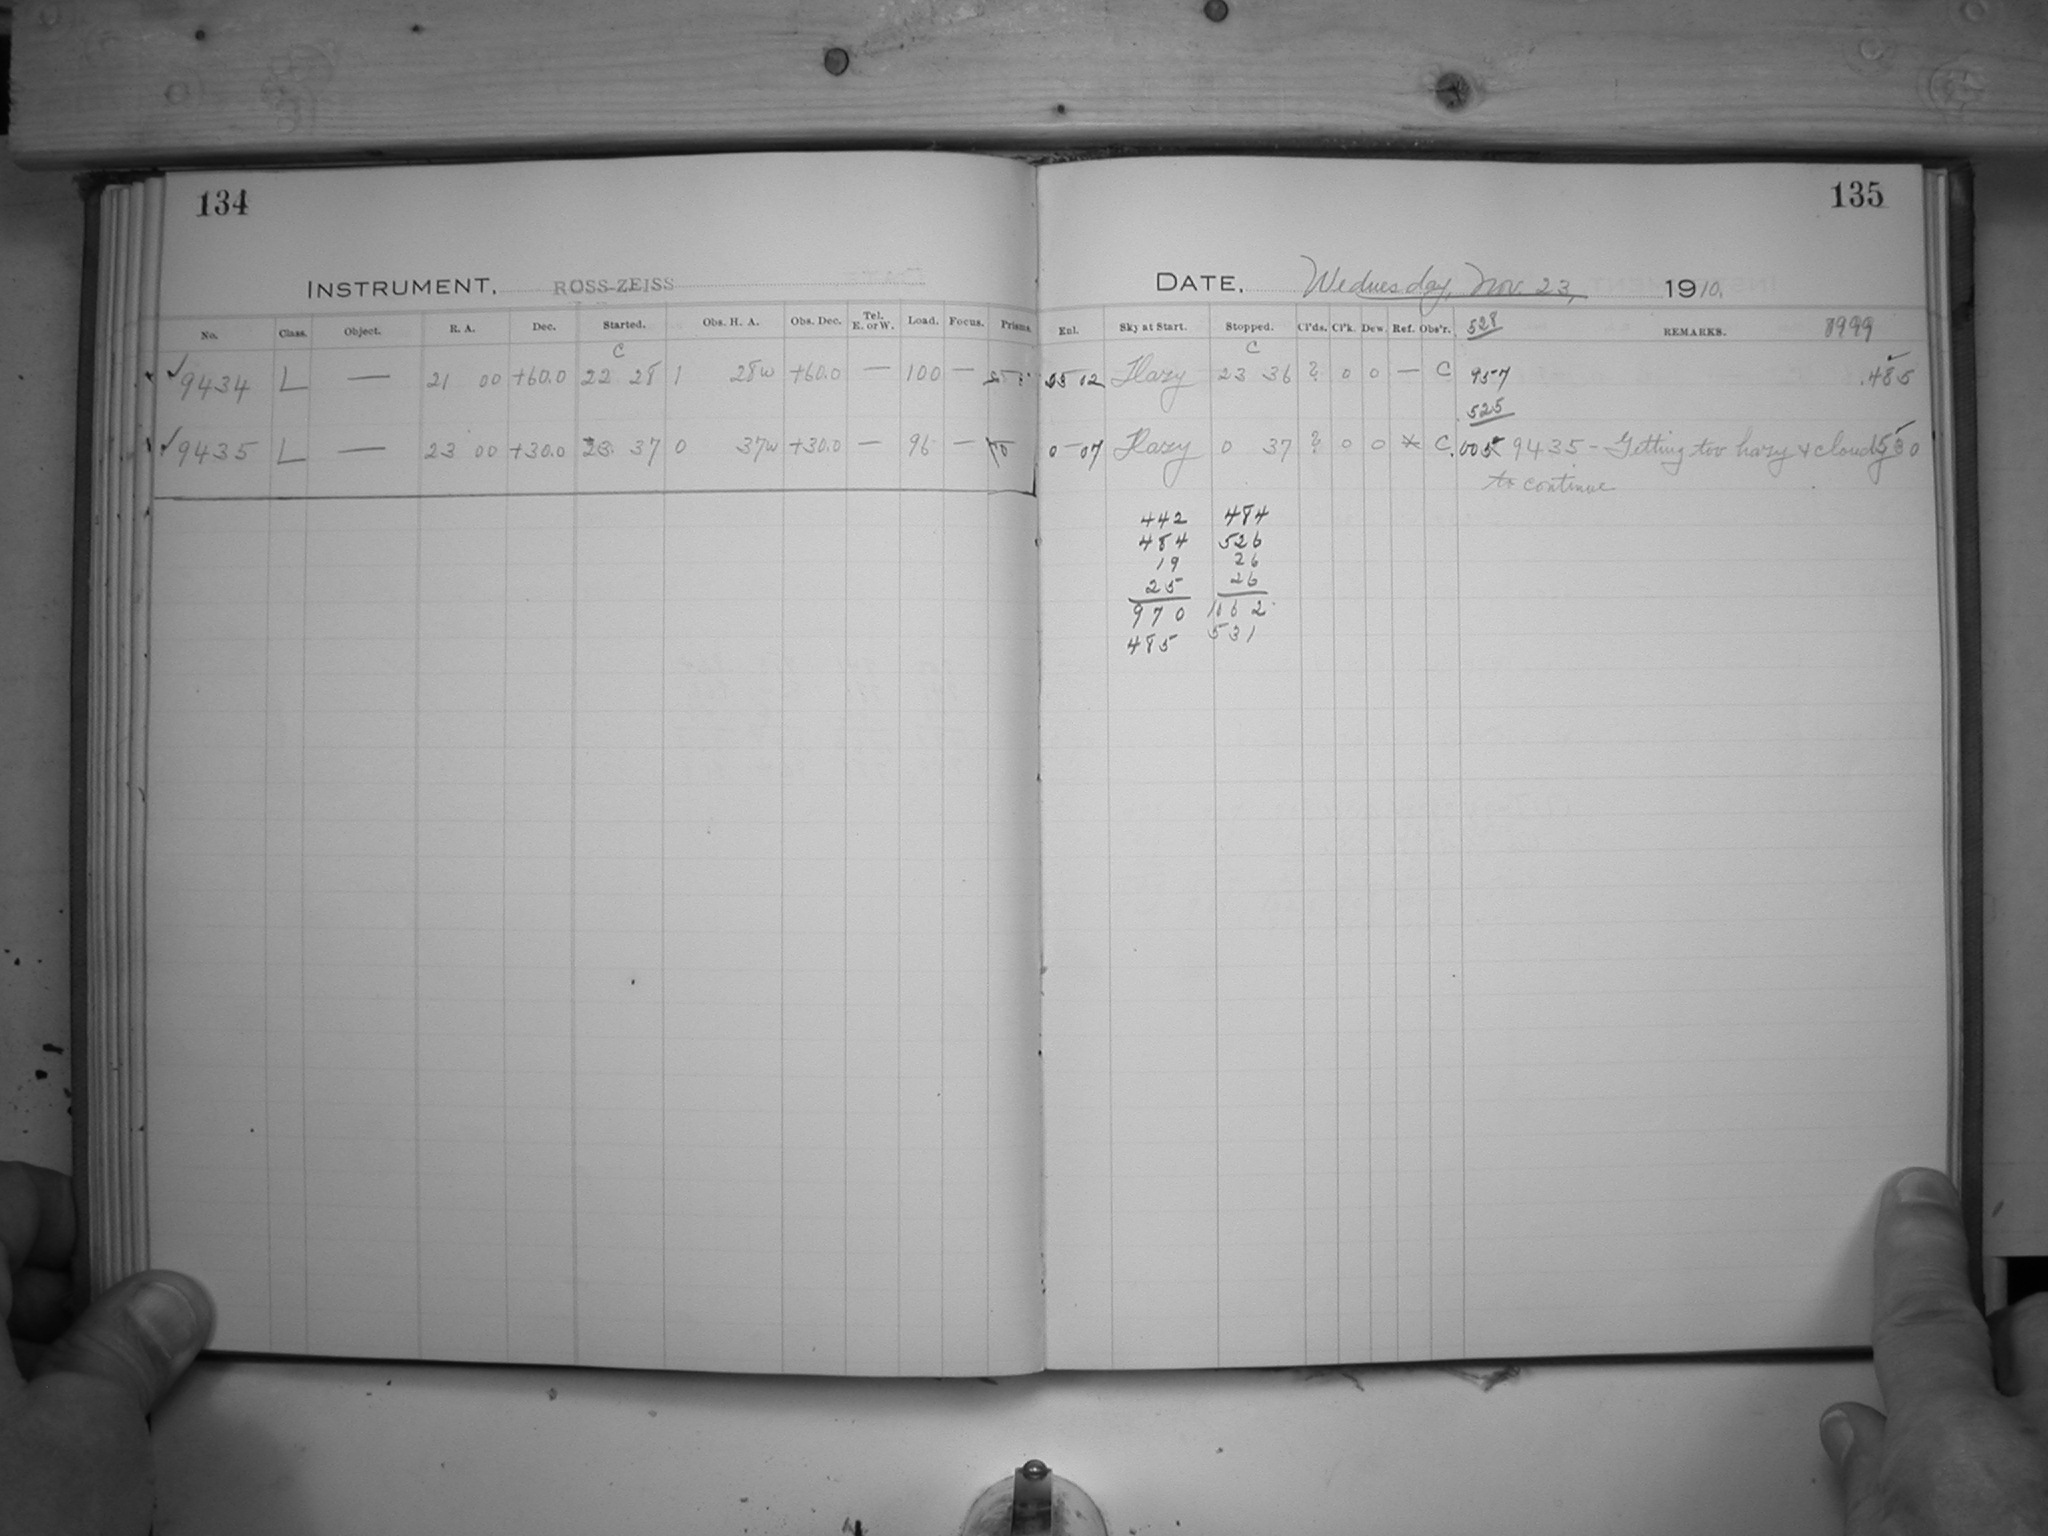 134
INSTRUMENT, ROSS-ZEISS
No. Class. Object. R. A. Dec. Started. Obs. H. A. Obs. Dec. Tel. E. or W. Load. Focus. Prisms.
C
✓9434 L — 21 00 +60.0 22 28 1 28w +60.0 — 100 —
✓9435 L — 23 00 +30.0 23 37 0 37w +30.0 — 96 —
135
DATE, Wednesday, Nov. 23, 1910.
Exl. Sky at Start. Stopped. Cl'ds. Cl'k. Dew. Ref. Obs'r. 528 REMARKS. 8999
C
02 Hazy 23 36 ? 0 0 — C 957 .485
525
0 07 Hazy 0 37 ? 0 0 * C. 005 9435 - Getting too hazy & cloudy 530
to continue
442 484
484 526
19 26
25 26
970 1062
485 531